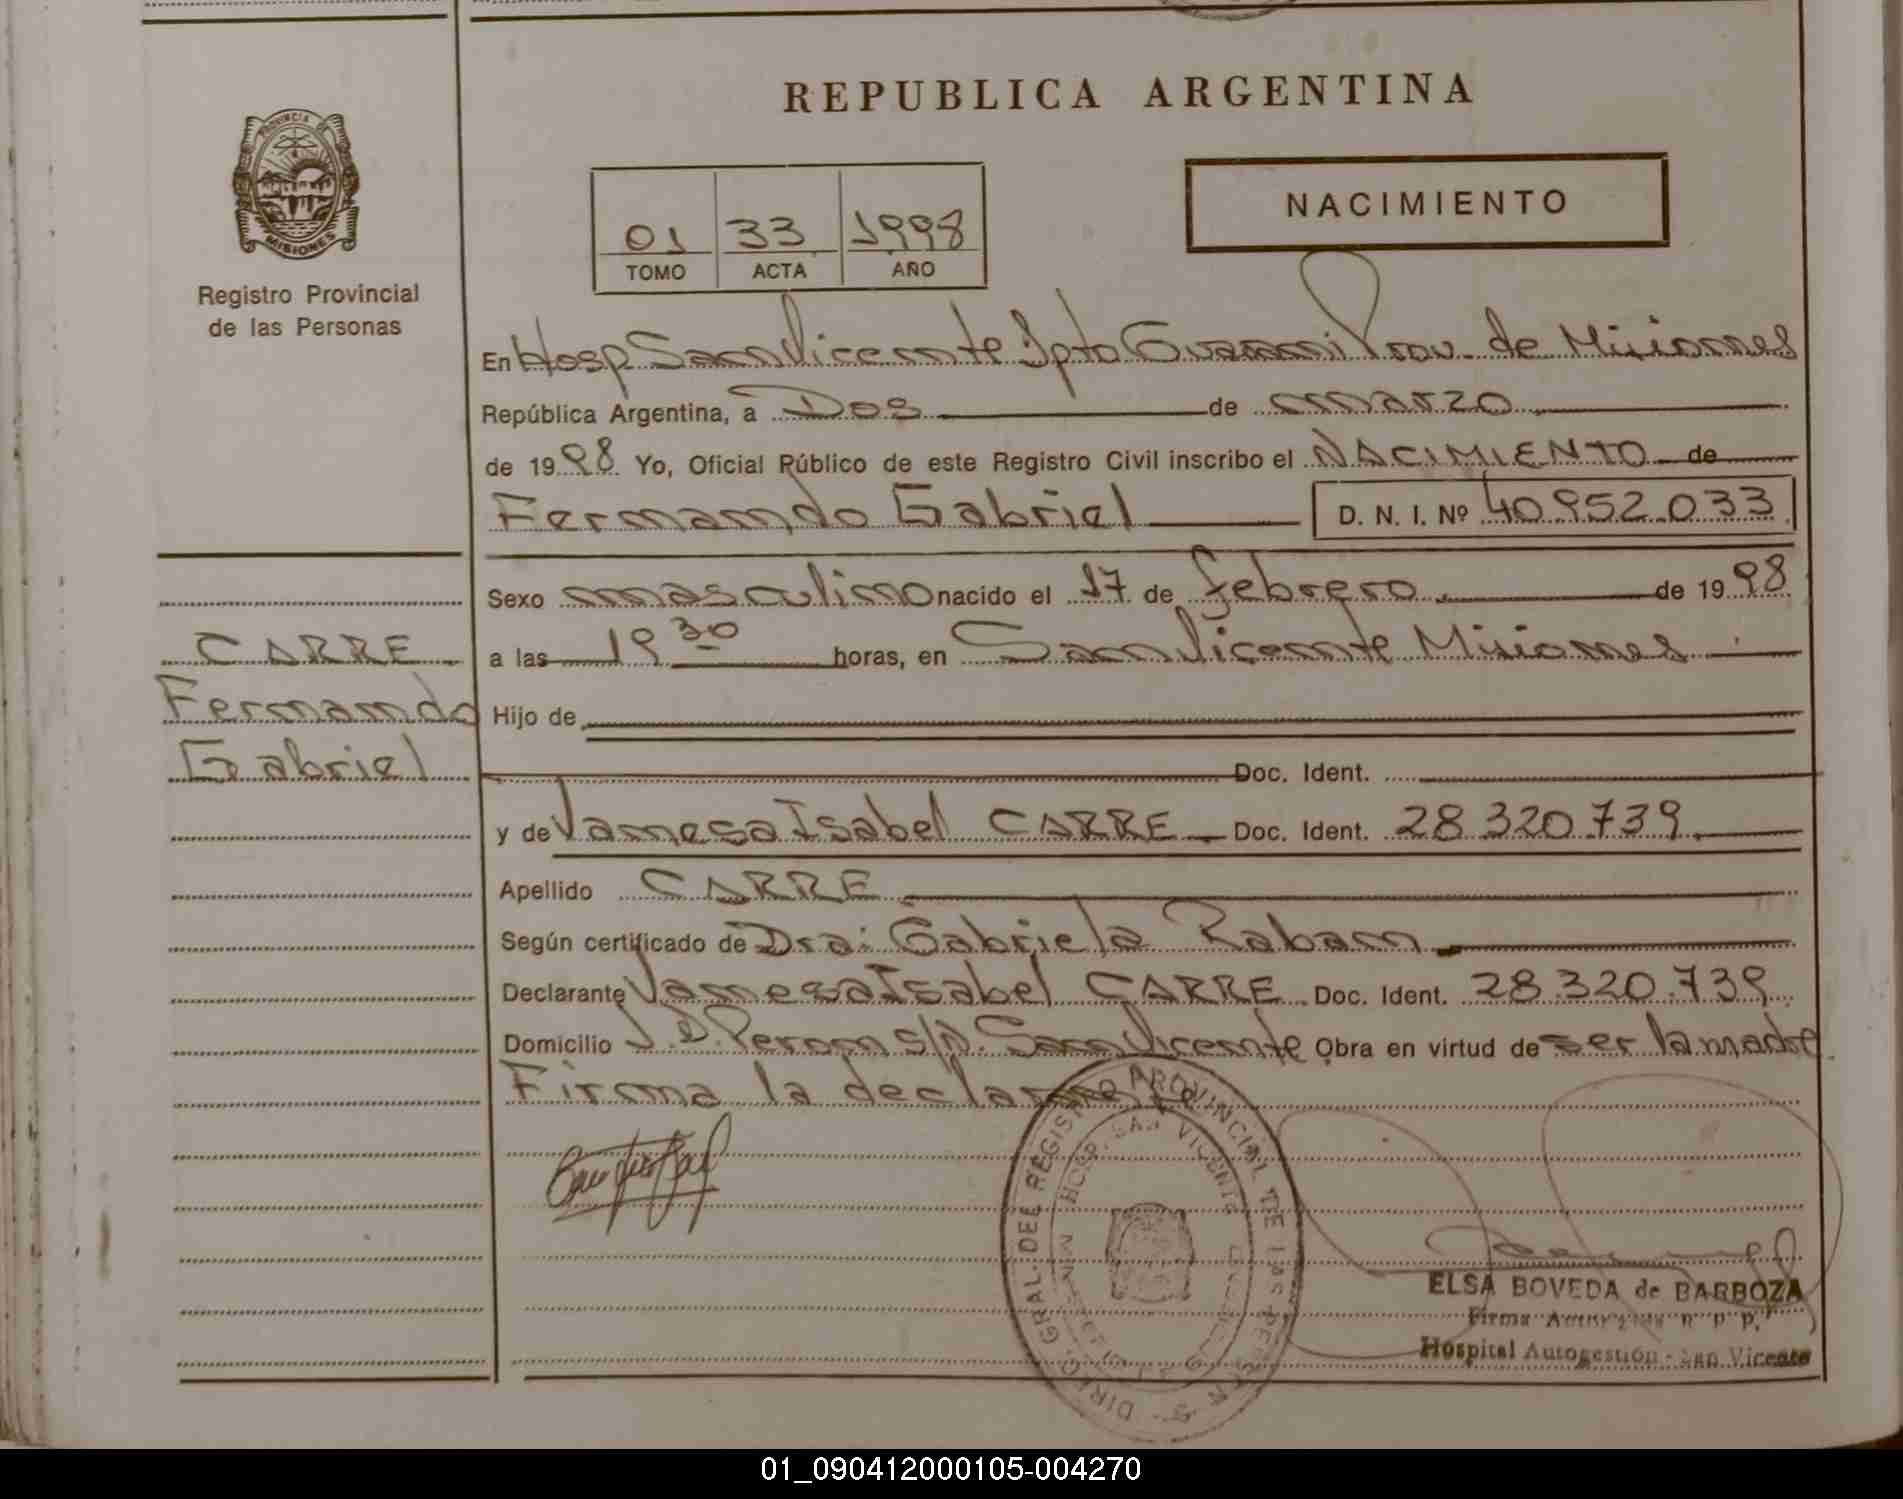 REPUBLICA ARGENTINA
PROVINCIA DE
MISIONES
Registro Provincial
de las Personas
01 33 1998
TOMO ACTA AÑO
NACIMIENTO
En Hosp San Vicente Dpto Guarani Prov. de Misiones
República Argentina, a Dos de marzo
de 1998 Yo, Oficial Público de este Registro Civil inscribo el NACIMIENTO de
Fernando Gabriel D. N. I. Nº 40.952.033
Sexo masculino nacido el 17 de febrero de 1998
a las 19 30 horas, en San Vicente Misiones
Hijo de
Doc. Ident.
y de Vanesa Isabel CARRE Doc. Ident. 28.320.739
Apellido CARRE
Según certificado de Dra: Gabriela Raban
Declarante Vanesa Isabel CARRE Doc. Ident. 28.320.739
Domicilio J.D. Peron s/n. San Vicente Obra en virtud de ser la madre.
Firma la declarante
CARRE
Fernando
Gabriel
DIREC. GRAL. DEL REGISTRO PROVINCIAL DE LAS PERSONAS
HOSP. SAN VICENTE
ELSA BOVEDA de BARBOZA
Firma
Hospital Autogestión - San Vicente
01_090412000105-004270